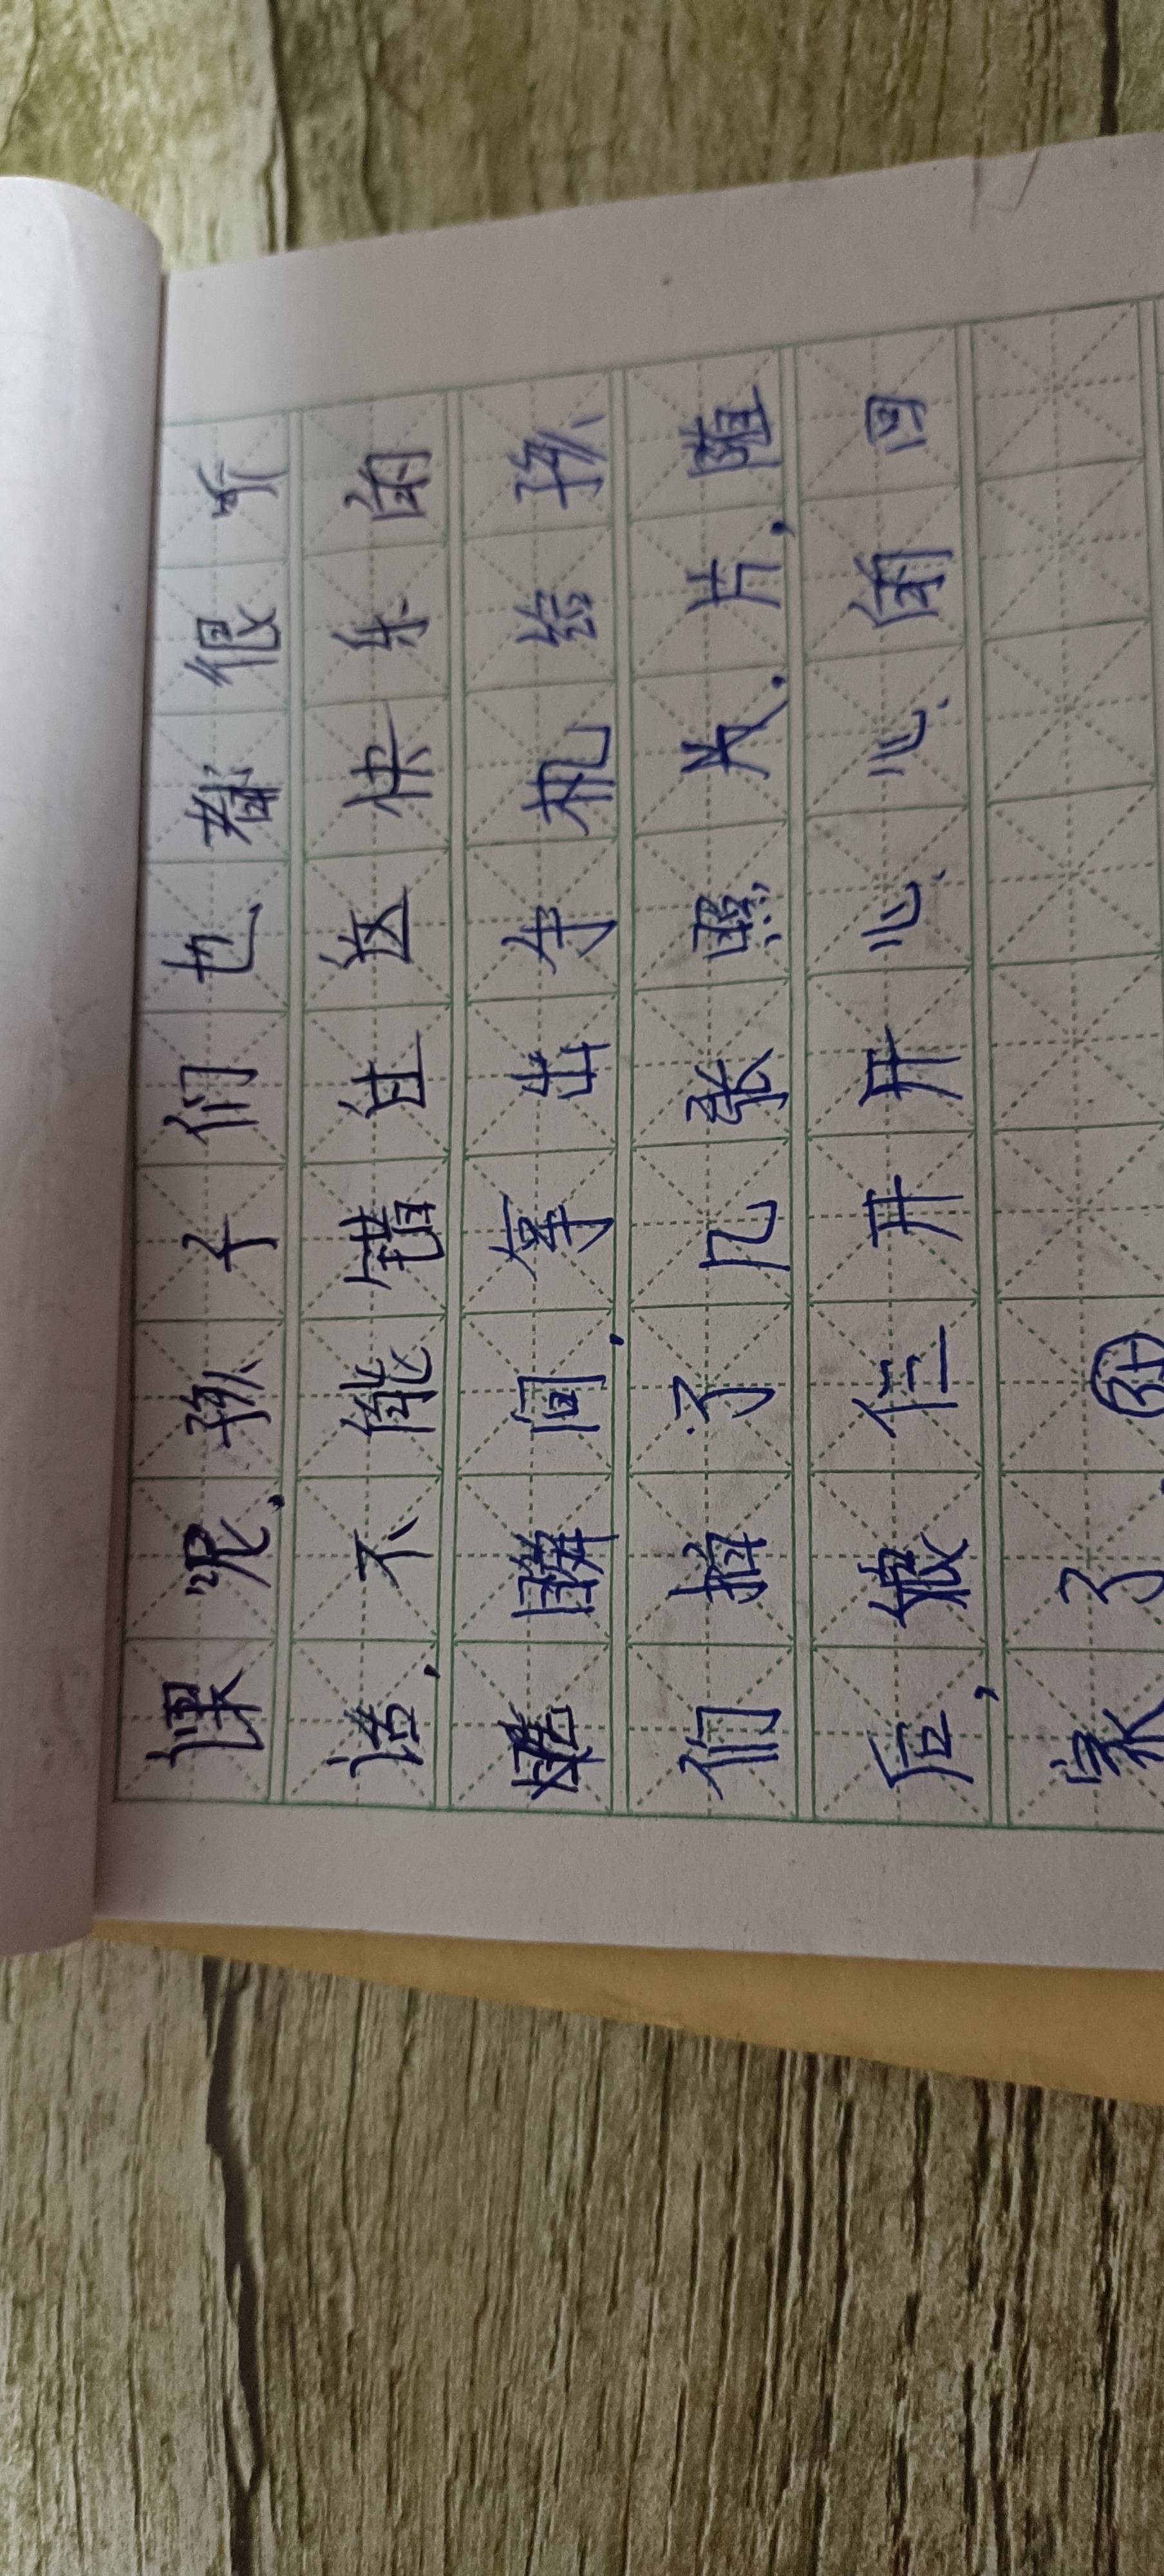 课呢.孩子们也都很听
话.不能错过这快乐的
瞬间.拿出手机给孩
们拍了几张照片,随
后,娘仨开开心心的回
家了